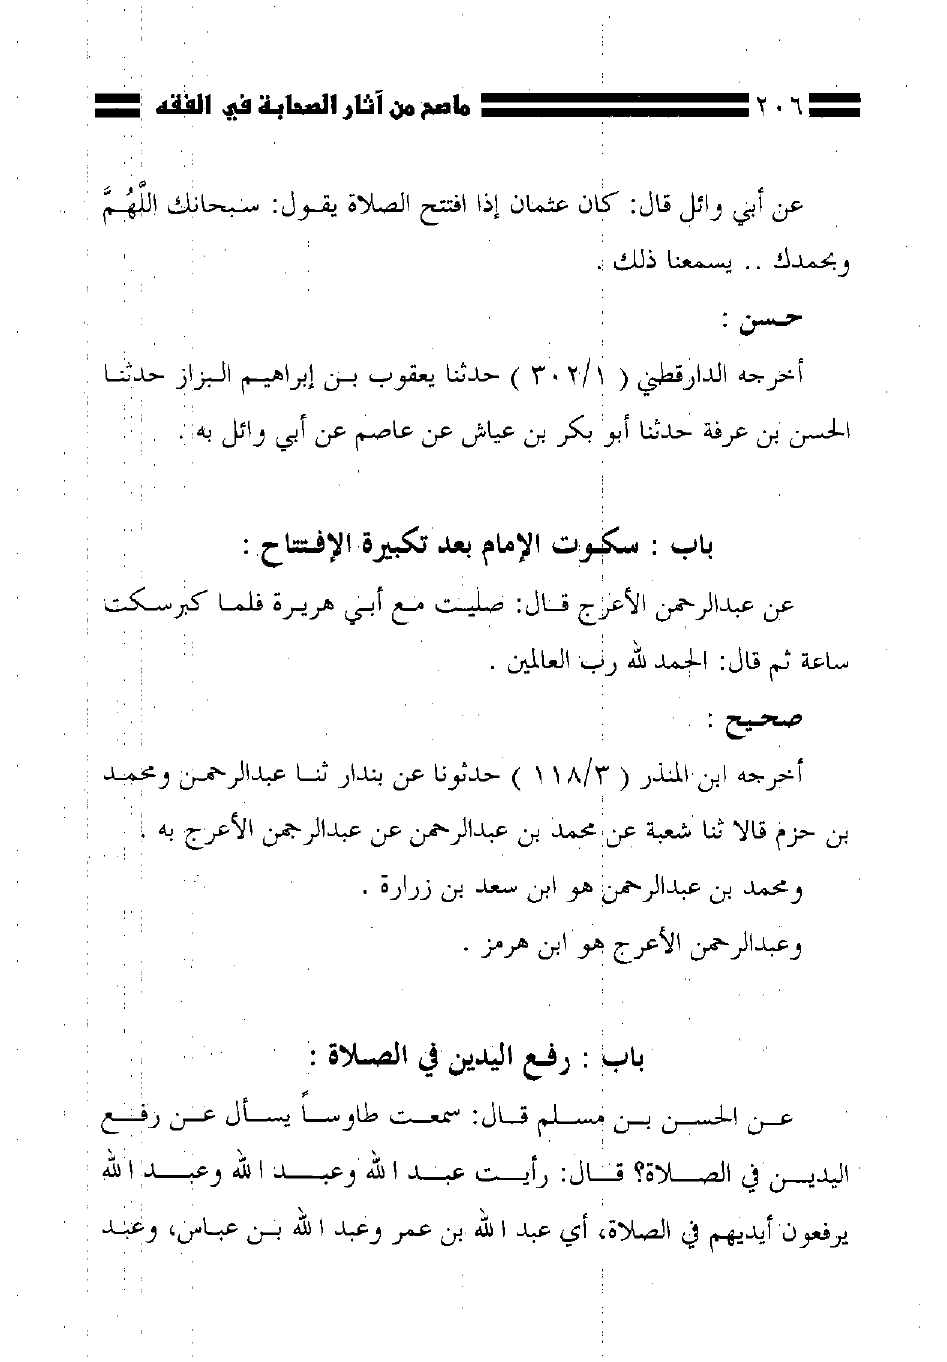 ٢٠٦ ماصح من آثار الصحابة في الفقه
عن أبي وائل قال: كان عثمان إذا افتتح الصلاة يقول: سبحانك اللَّهُمَّ
وبحمدك .. يسمعنا ذلك .
حسن :
أخرجه الدارقطني ( ٣٠٢/١ ) حدثنا يعقوب بن إبراهيم البزاز حدثنا
الحسن بن عرفة حدثنا أبو بكر بن عياش عن عاصم عن أبي وائل به .
باب : سكوت الإمام بعد تكبيرة الإفتتاح :
عن عبدالرحمن الأعرج قال: صليت مع أبي هريرة فلما كبر سكت
ساعة ثم قال: الحمد لله رب العالمين .
صحيح :
أخرجه ابن المنذر ( ١١٨/٣ ) حدثونا عن بندار ثنا عبدالرحمن ومحمد
بن حزم قالا ثنا شعبة عن محمد بن عبدالرحمن عن عبدالرحمن الأعرج به .
ومحمد بن عبدالرحمن هو ابن سعد بن زرارة .
وعبدالرحمن الأعرج هو ابن هرمز .
باب : رفع اليدين في الصلاة :
عن الحسن بن مسلم قال: سمعت طاوساً يسأل عن رفع
اليدين في الصلاة؟ قال: رأيت عبد الله وعبد الله وعبد الله
يرفعون أيديهم في الصلاة، أي عبد الله بن عمر وعبد الله بن عباس، وعبد